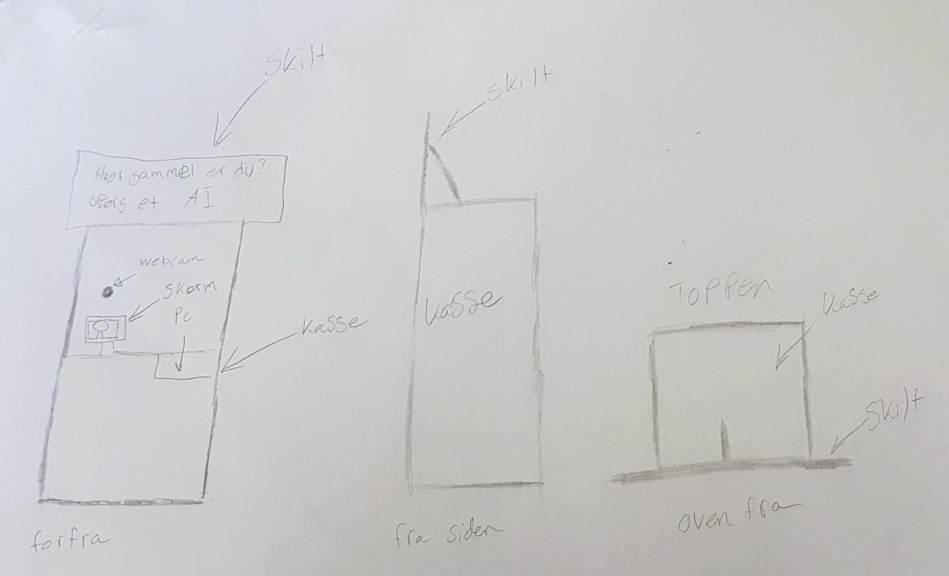 Skilt
Hvor gammel er du?
spørg et AI
webcam
Skærm
PC
Kasse
forfra
Skilt
Kasse
fra siden
TOPPEN
Kasse
Skilt
oven fra